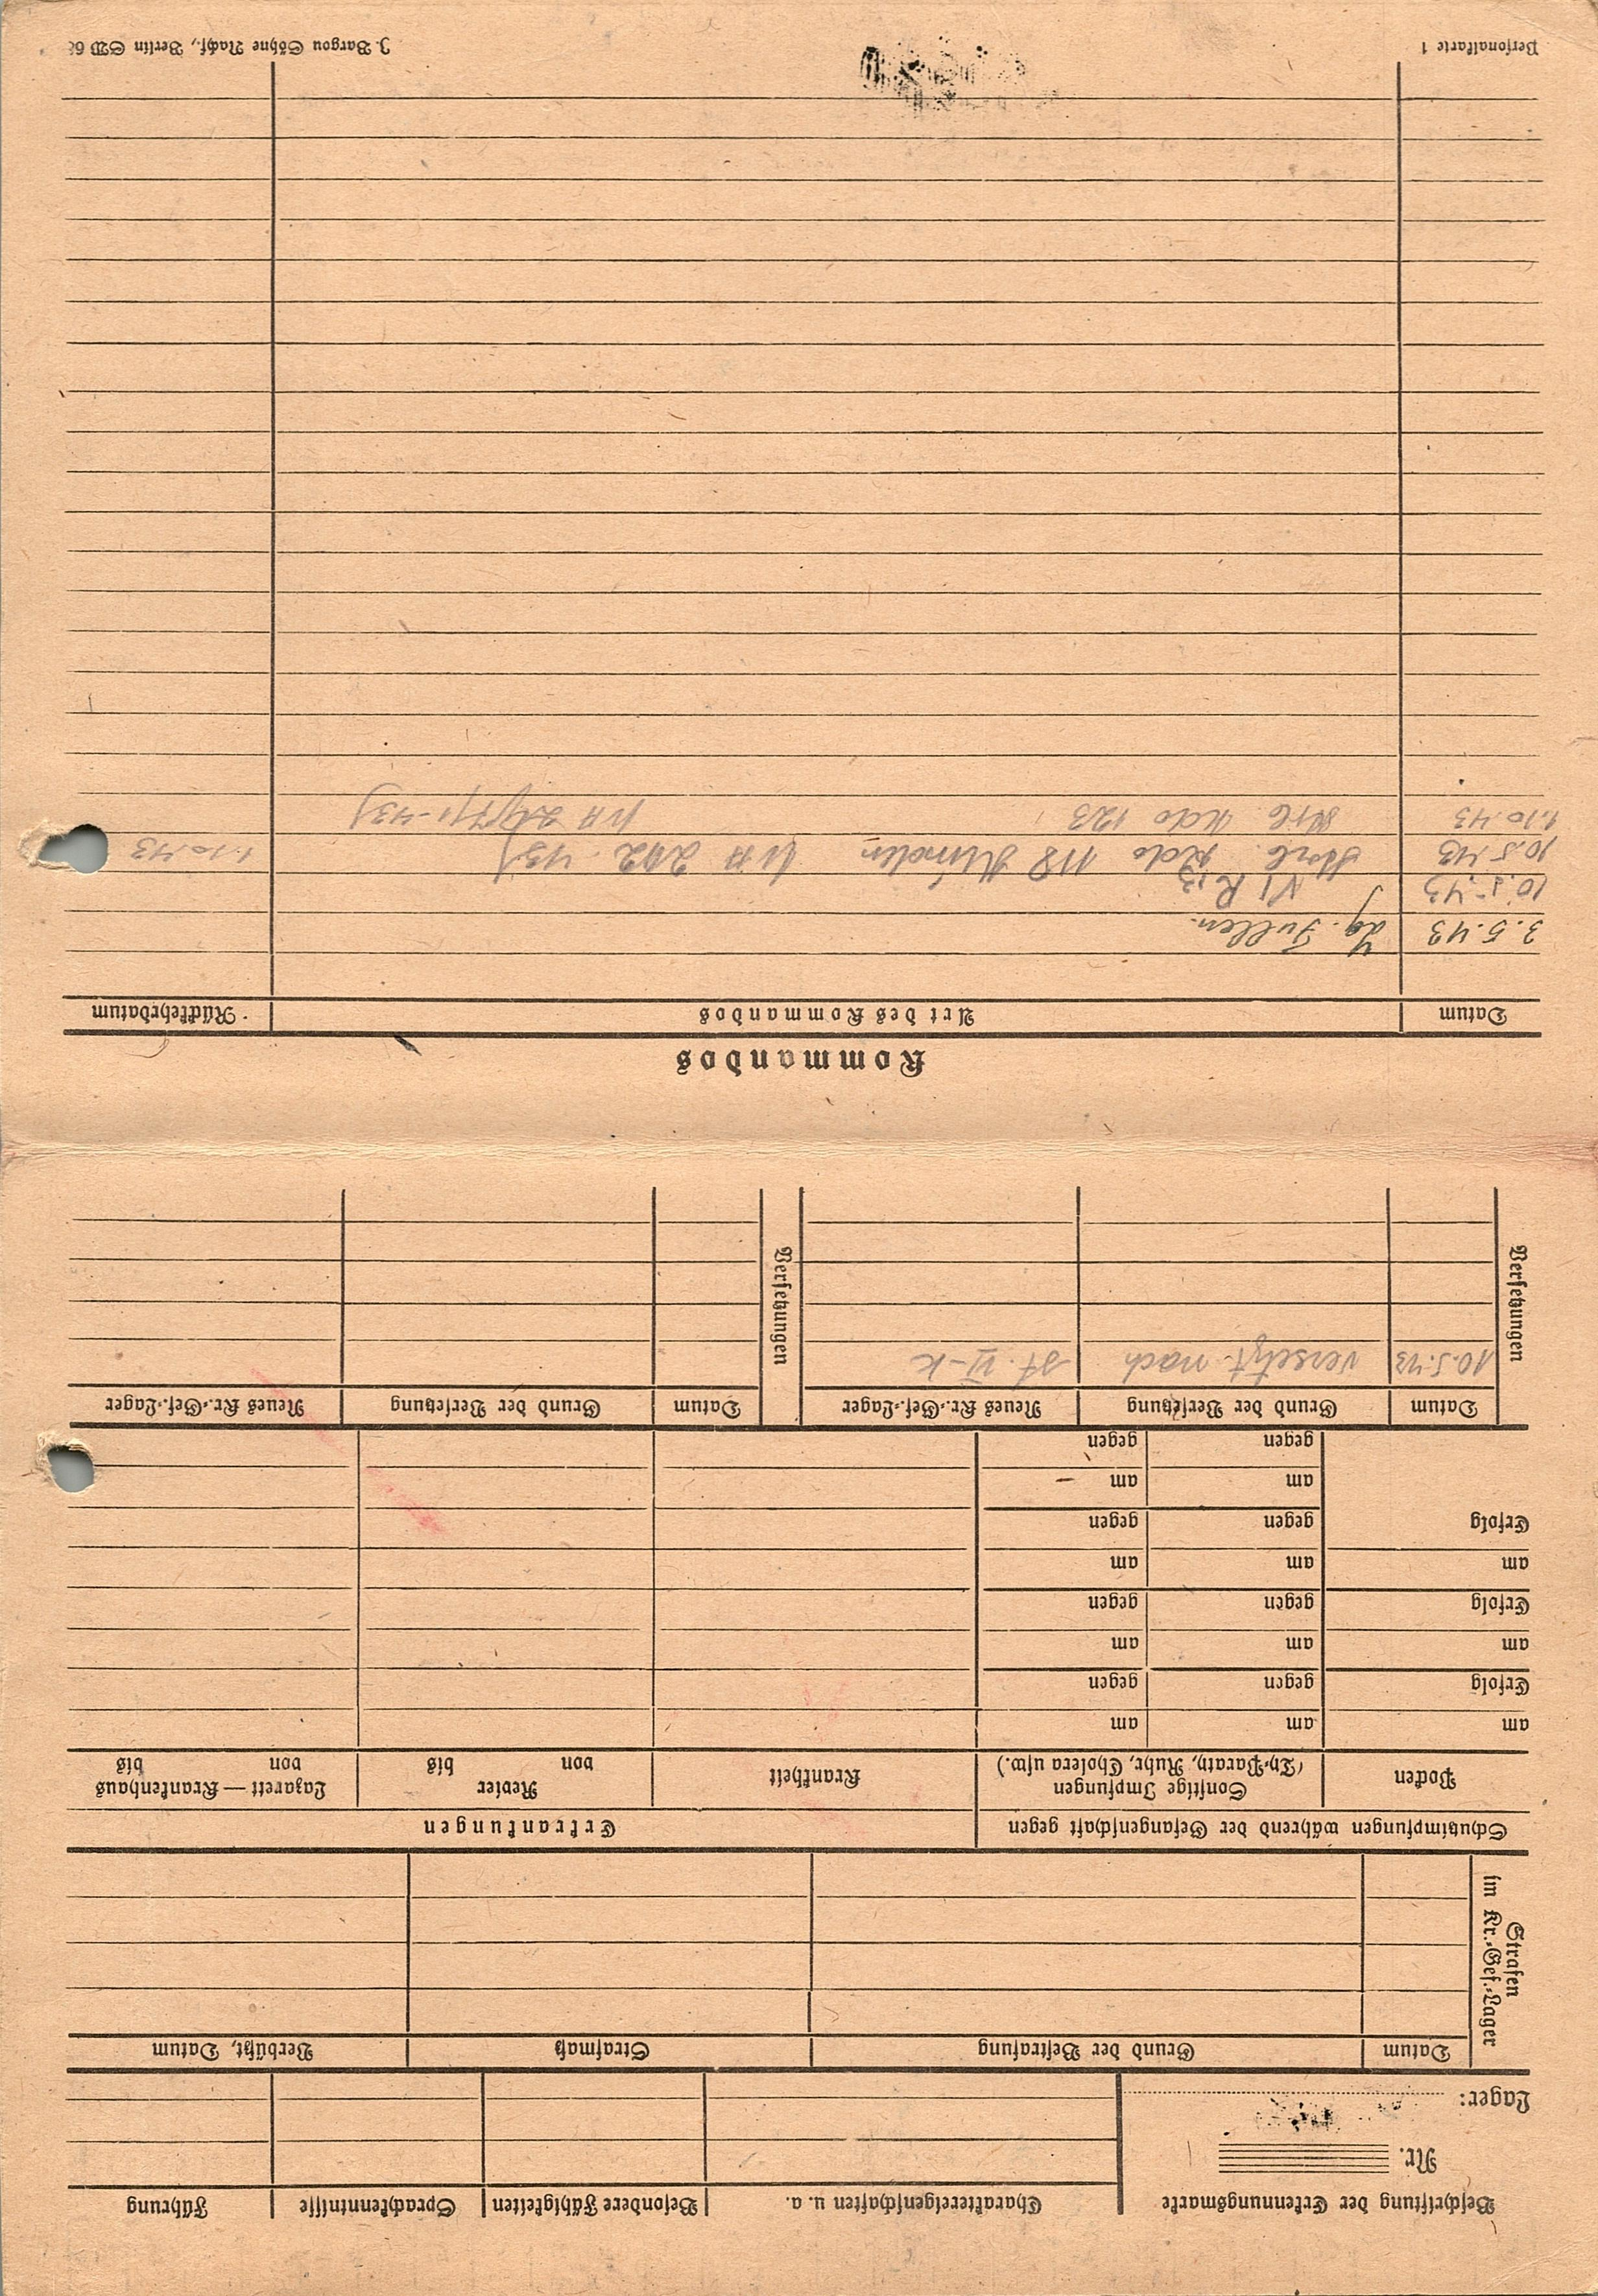 Beschriftung der Erkennungsmarke | Charaktereigenschaften u. a. | Besondere Fähigkeiten | Sprachkenntnisse | Führung
Nr.
Lager:
Strafen im Kr.-Gef.-Lager
Datum | Grund der Bestrafung | Strafmaß | Verbüßt, Datum
Schutzimpfungen während der Gefangenschaft gegen | Erkrankungen
Pocken | Sonstige Impfungen (Ty.-Paraty., Ruhr, Cholera usw.) | Krankheit | Revier von bis | Lazarett — Krankenhaus von bis
am | am | am
Erfolg | gegen | gegen
am | am | am
Erfolg | gegen | gegen
am | am | am
Erfolg | gegen | gegen
am | am
gegen | gegen
Versetzungen | Versetzungen
Datum | Grund der Versetzung | Neues Kr.-Gef.-Lager | Datum | Grund der Versetzung | Neues Kr.-Gef.-Lager
10.5.43 | versetzt nach | St. VI-K
Kommandos
Datum | Art des Kommandos | Rückkehrdatum
3.5.43 | Fullen
10.5.43 | VI R
10.5.43 | Kdo 118 | 1.10.43
1.10.43 | Kdo 123
Personalkarte 1 | J. Bargou Söhne Nachf., Berlin SW 68